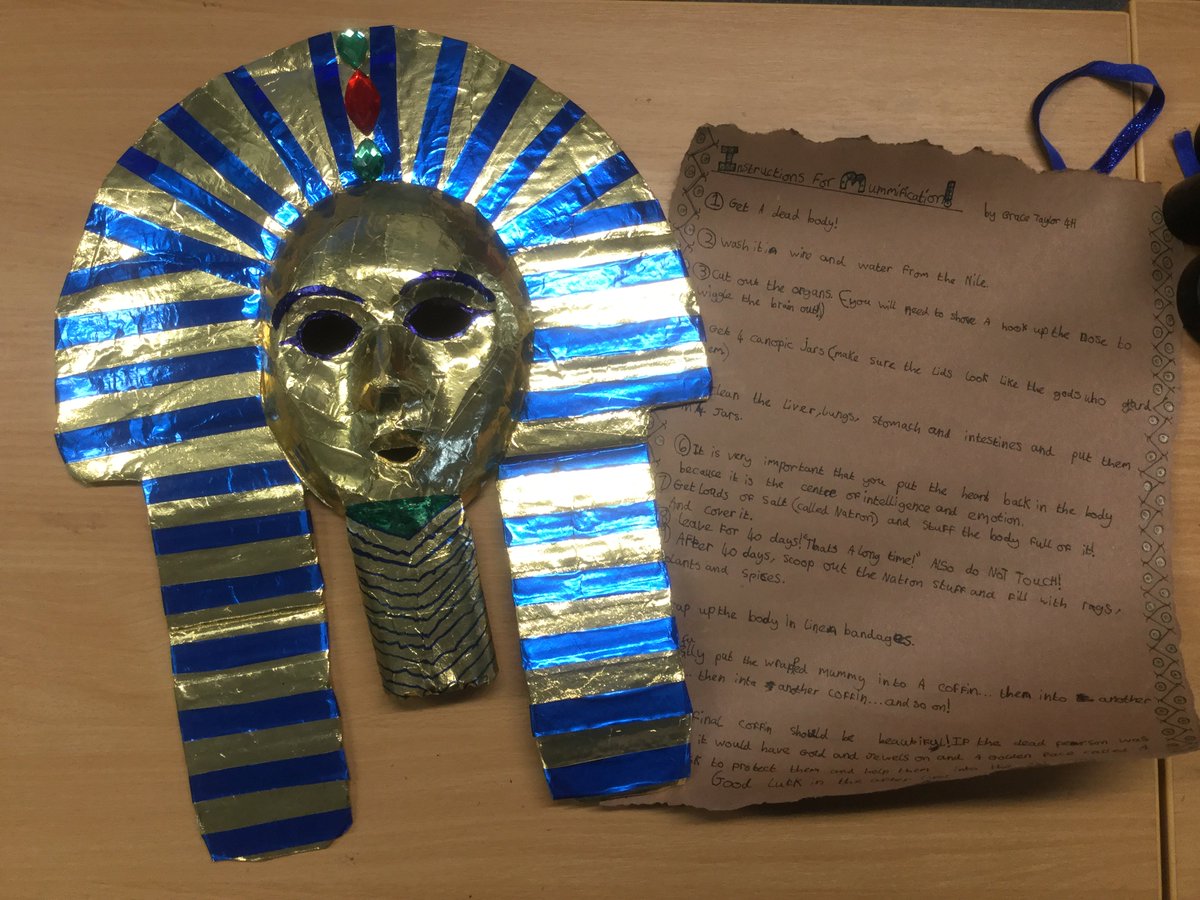 Instructions For Mummification!
by Grace Taylor 4H
① Get A dead body!
② Wash it in wine and water from the Nile.
③ Cut out the organs. (you will need to shove A hook up the nose to
wiggle the brain out!)
Get 4 canopic jars (make sure the lids look like the gods who guard
em)
clean the liver, lungs, stomach and intestines and put them
in 4 jars.
⑥ It is very important that you put the heart back in the body
because it is the centre of intelligence and emotion.
Get loads of salt (called Natron) and stuff the body full of it!
And cover it.
leave for 40 days! "Thats A long time!" Also do NOT TOUCH!
After 40 days, scoop out the Natron stuff and fill with rags,
plants and spices.
rap up the body in linen bandages.
put the wrapped mummy into A coffin... them into another
... then into another coffin... and so on!
Final coffin should be beautiful! If the dead person was
it would have gold and jewels on and A golden called A
to protect them and help them into the
Good luck in the